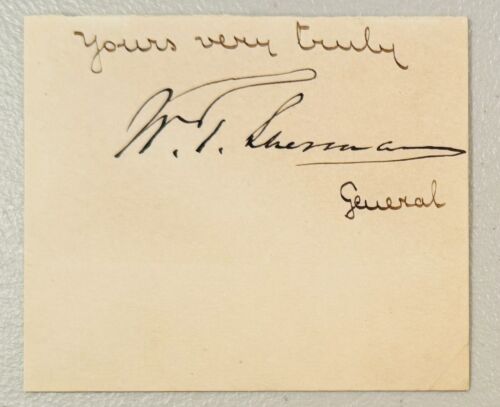 Yours very truly
W. T. Sherman
General